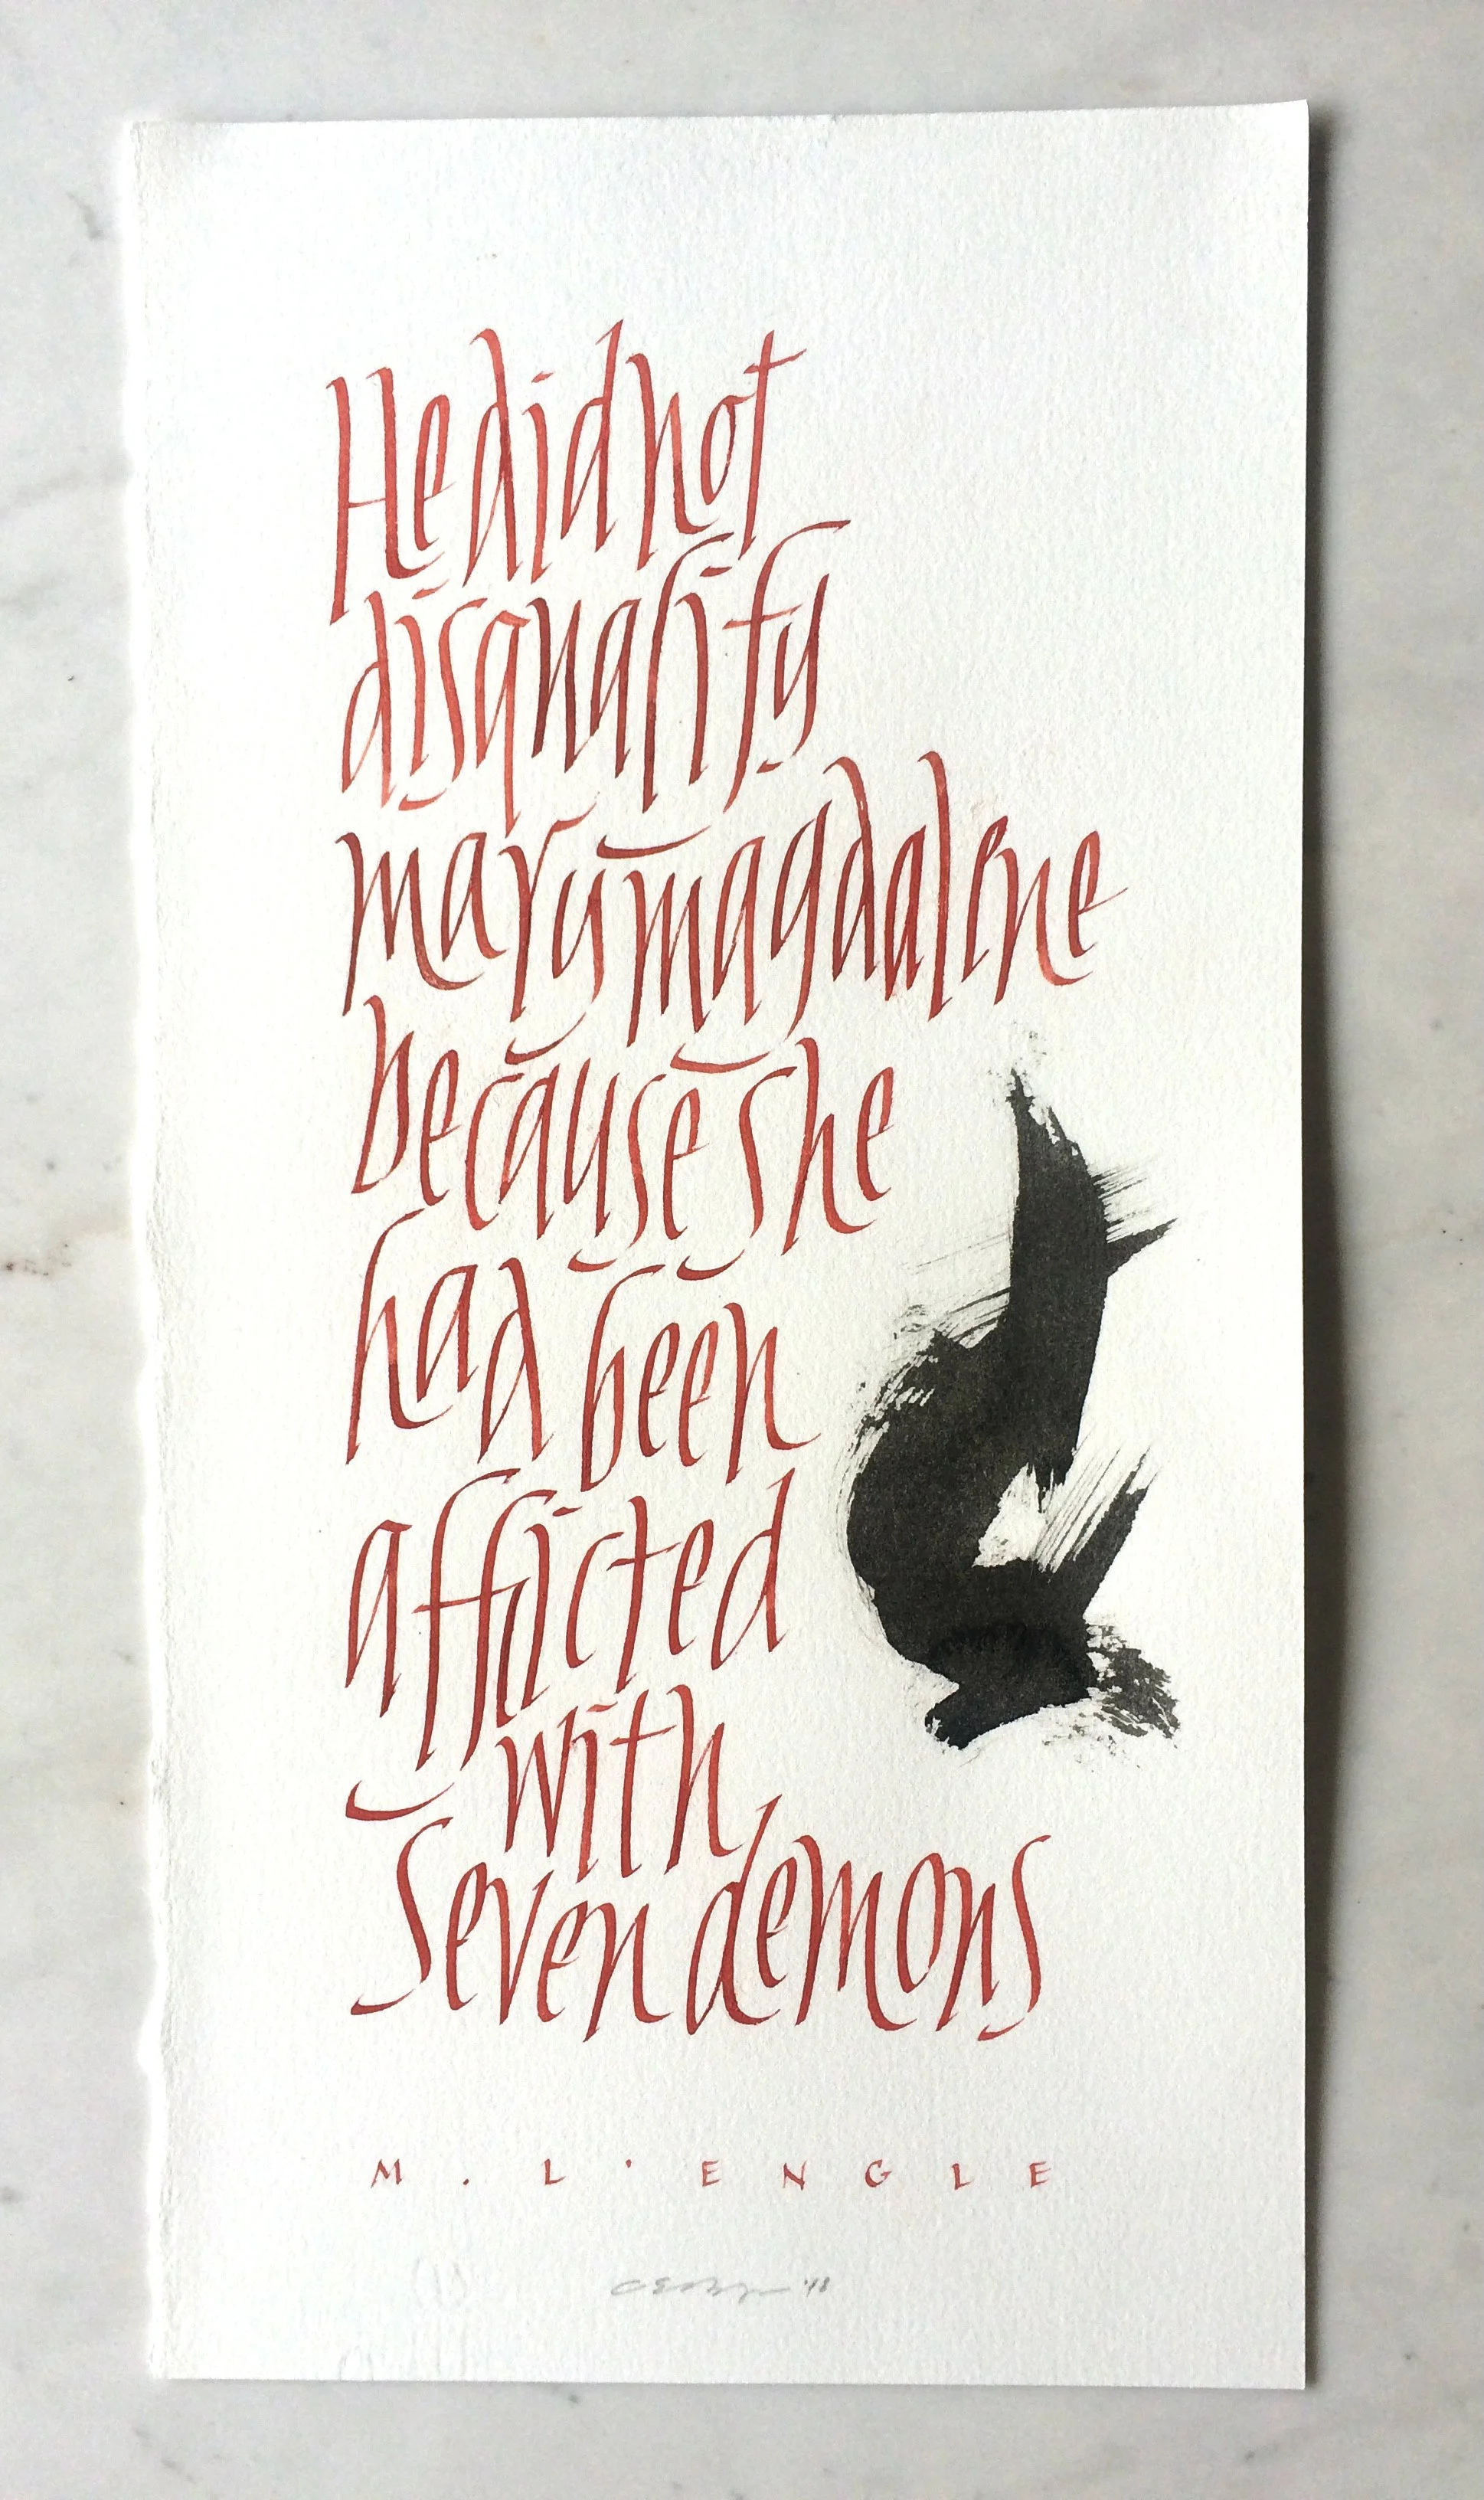 He did not
disqualify
mary magdalene
because she
had been
afflicted
with
seven demons
M. L'ENGLE
'18